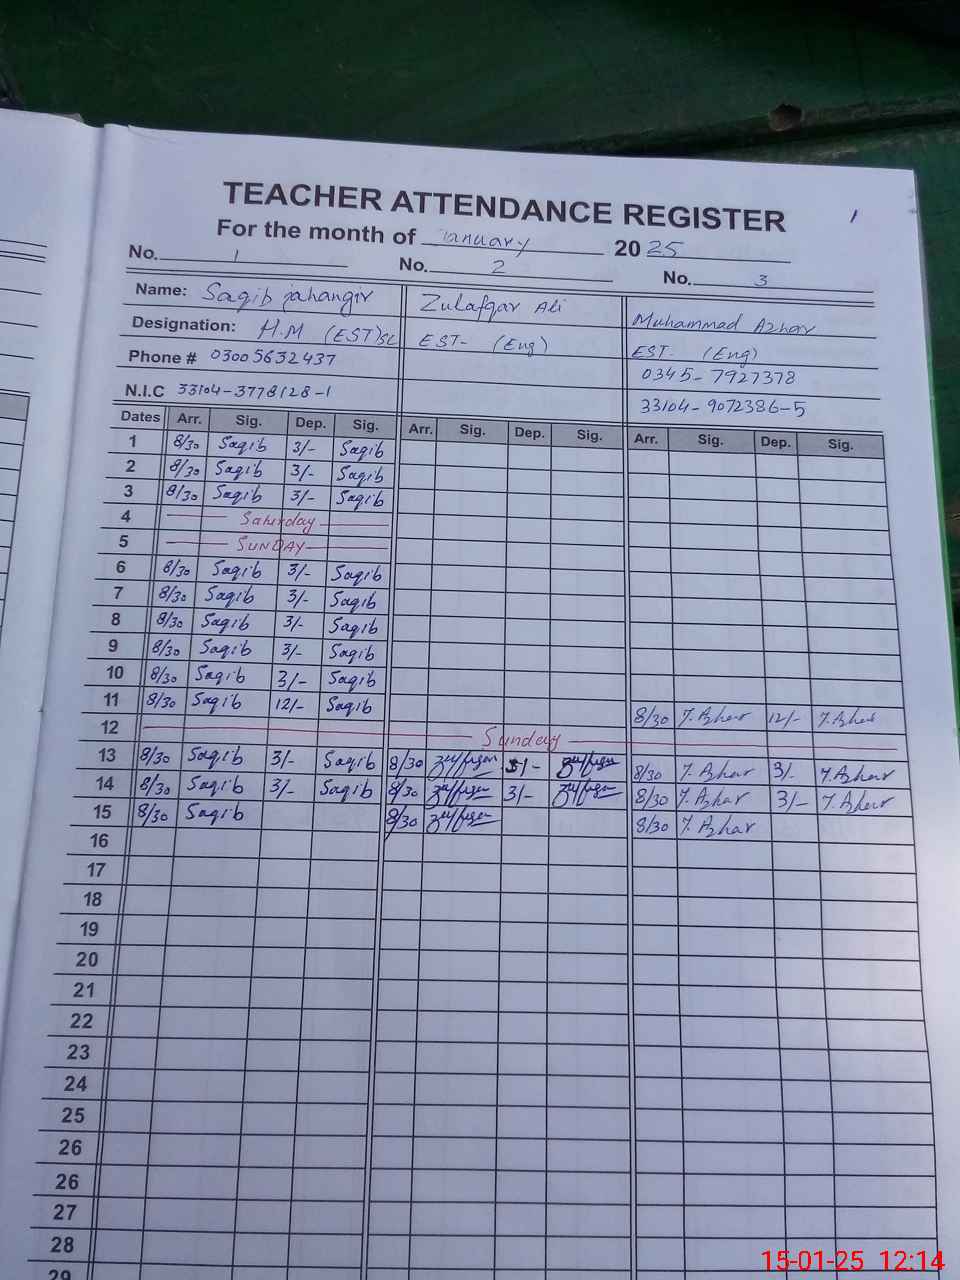 TEACHER ATTENDANCE REGISTER
1
For the month of January 2025
No. 1 No. 2 No. 3
Name: Saqib jahangir Zulafqar Ali Muhammad Azhar
Designation: H.M (EST)SC EST- (Eng) EST- (Eng)
Phone # 03005632437 0345-7927378
N.I.C 33104-3778128-1 33104-9072386-5
Dates Arr. Sig. Dep. Sig. Arr. Sig. Dep. Sig. Arr. Sig. Dep. Sig.
1 8/30 Saqib 3/- Saqib
2 8/30 Saqib 3/- Saqib
3 8/30 Saqib 3/- Saqib
4 Saturday
5 SUNDAY
6 8/30 Saqib 3/- Saqib
7 8/30 Saqib 3/- Saqib
8 8/30 Saqib 3/- Saqib
9 8/30 Saqib 3/- Saqib
10 8/30 Saqib 3/- Saqib
11 8/30 Saqib 12/- Saqib 8/30 T. Azhar 12/- T. Azhar
12 Sunday
13 8/30 Saqib 3/- Saqib 8/30 3/- 8/30 T. Azhar 3/- T. Azhar
14 8/30 Saqib 3/- Saqib 8/30 3/- 8/30 T. Azhar 3/- T. Azhar
15 8/30 Saqib 8/30 8/30 T. Azhar
16
17
18
19
20
21
22
23
24
25
26
26
27
28
29
15-01-25 12:14